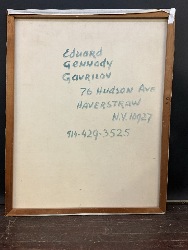 Eduard
Gennady
Gavrilov
76 Hudson Ave
Haverstraw
N.Y. 10927
914-429-3525